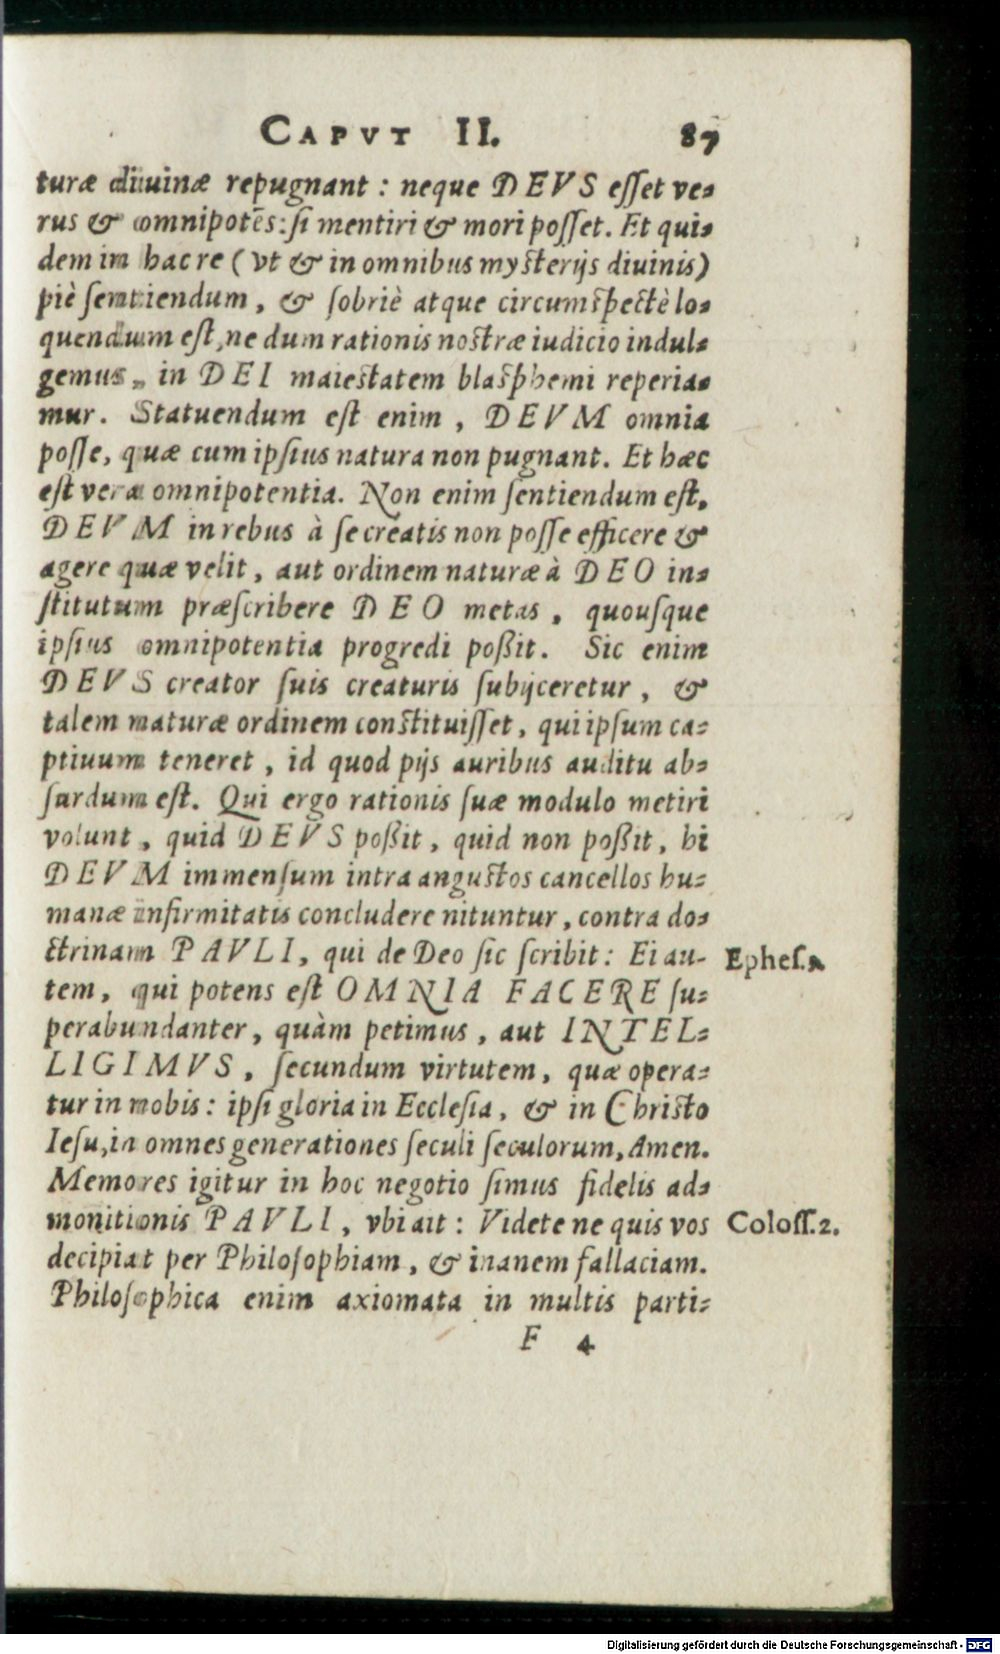 CAPVT II. 87
turæ diuinæ repugnant: neque DEVS eſſet ve-
rus & omnipotẽs: ſi mentiri & mori poſſet. Et qui-
dem in hac re (vt & in omnibus myſterijs diuinis)
piè ſentiendum, & ſobriè atque circumſpectè lo-
quendum eſt, ne dum rationis noſtræ iudicio indul-
gemus, in DEI maieſtatem blaſphemi reperia-
mur. Statuendum eſt enim, DEVM omnia
poſſe, quæ cum ipſius natura non pugnant. Et hæc
eſt vera omnipotentia. Non enim ſentiendum eſt,
DEVM in rebus à ſe creatis non poſſe efficere &
agere quæ velit, aut ordinem naturæ à DEO in-
ſtitutum præſcribere DEO metas, quouſque
ipſius omnipotentia progredi poßit. Sic enim
DEVS creator ſuis creaturis ſubijceretur, &
talem naturæ ordinem conſtituiſſet, qui ipſum ca-
ptiuum teneret, id quod pijs auribus auditu ab-
ſurdum eſt. Qui ergo rationis ſuæ modulo metiri
volunt, quid DEVS poßit, quid non poßit, hi
DEVM immenſum intra anguſtos cancellos hu-
manæ infirmitatis concludere nituntur, contra do-
ctrinam PAVLI, qui de Deo ſic ſcribit: Ei au-
Epheſ.
tem, qui potens eſt OMNIA FACERE ſu-
perabundanter, quàm petimus, aut INTEL-
LIGIMVS, ſecundum virtutem, quæ opera-
tur in nobis: ipſi gloria in Eccleſia, & in Chriſto
Ieſu, in omnes generationes ſeculi ſeculorum, Amen.
Memores igitur in hoc negotio ſimus fidelis ad-
monitionis PAVLI, vbi ait: Videte ne quis vos
Coloſſ. 2.
decipiat per Philoſophiam, & inanem fallaciam.
Philoſophica enim axiomata in multis parti-
F 4
Digitalisierung gefördert durch die Deutsche Forschungsgemeinschaft - DFG